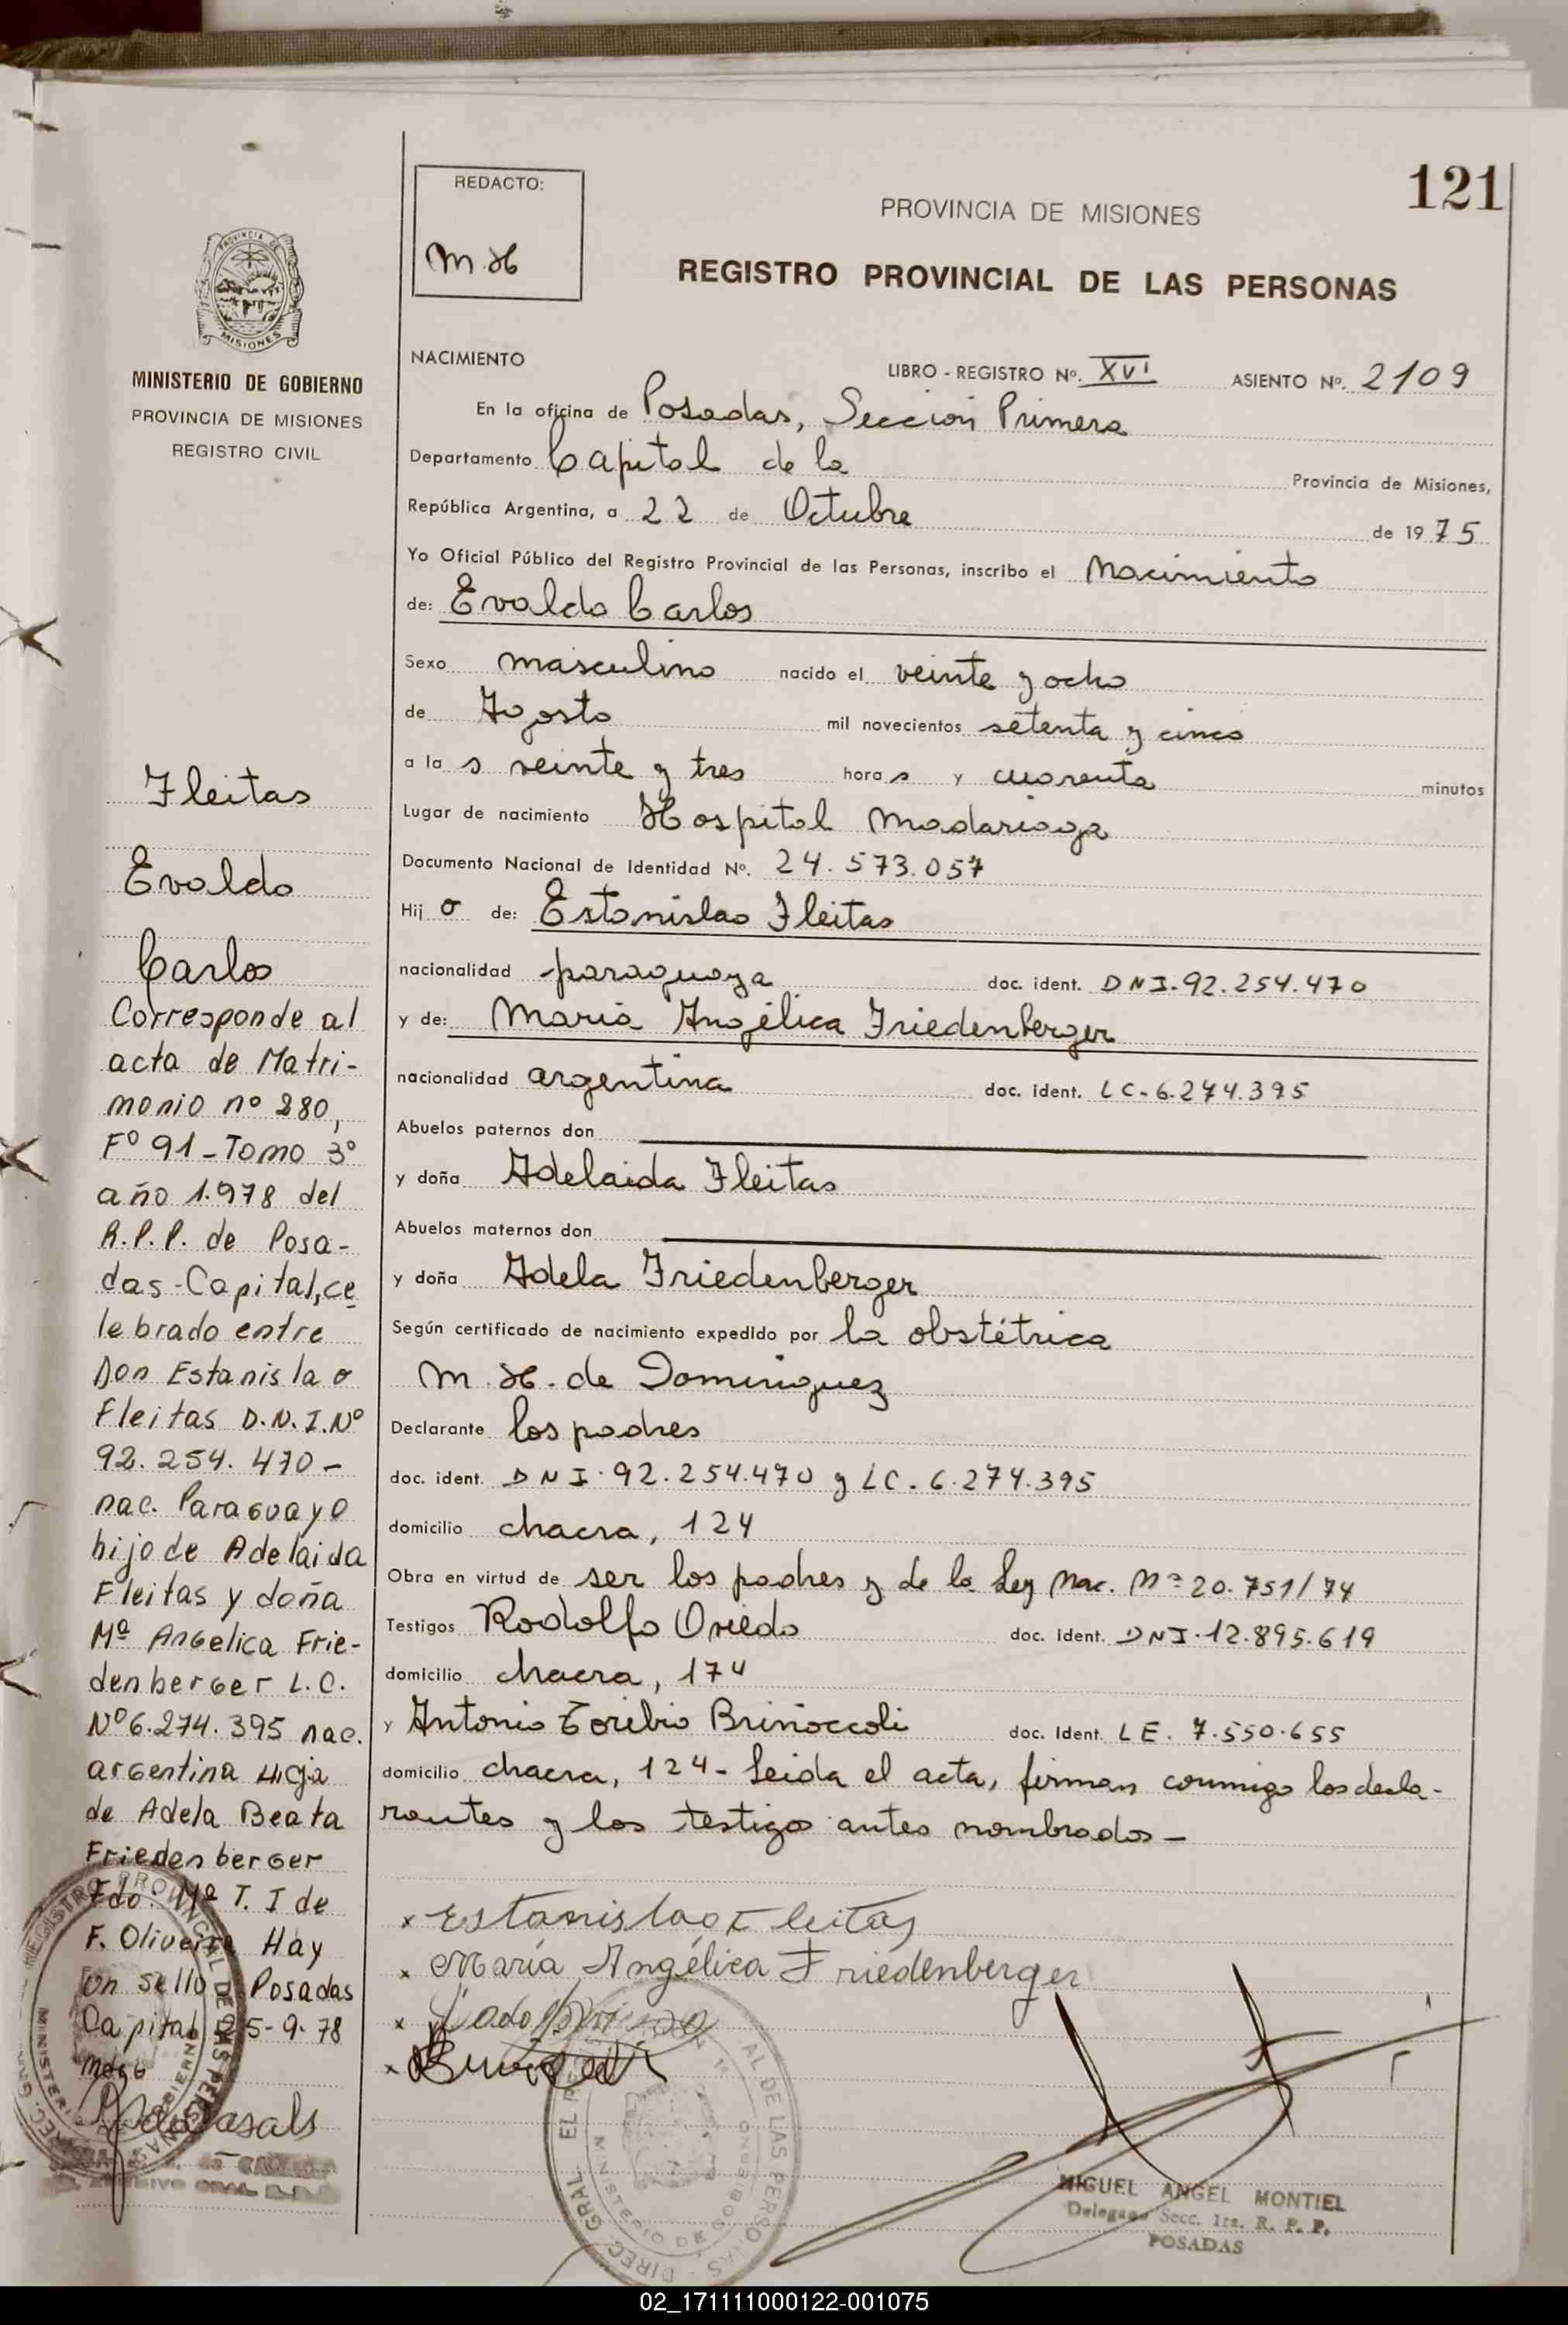 121
REDACTO:
M.H
PROVINCIA DE MISIONES
REGISTRO PROVINCIAL DE LAS PERSONAS
PROVINCIA DE MISIONES
MINISTERIO DE GOBIERNO
PROVINCIA DE MISIONES
REGISTRO CIVIL
Fleitas
Evaldo
Carlos
Corresponde al
acta de Matri-
monio nº 280,
Fº 91-Tomo 3º
año 1.978 del
R.P.P. de Posa-
das-Capital, ce
lebrado entre
Don Estanislao
Fleitas D.N.I.Nº
92.254.470-
nac. Paraguayo
hijo de Adelaida
Fleitas y doña
Mª Angelica Frie-
denberger L.C.
Nº 6.274.395 nac.
argentina Hija
de Adela Beata
Friedenberger
Fdo: Mª T. I de
F. Oliveira Hay
un sello Posadas
Capital 25-9-78
NACIMIENTO
LIBRO - REGISTRO Nº. XVI ASIENTO Nº. 2109
En la oficina de Posadas, Sección Primera
Departamento Capital de la Provincia de Misiones,
República Argentina, a 22 de Octubre de 1975
Yo Oficial Público del Registro Provincial de las Personas, inscribo el Nacimiento
de: Evaldo Carlos
Sexo masculino nacido el veinte y ocho
de Agosto mil novecientos setenta y cinco
a la s veinte y tres hora s y cuarenta minutos
Lugar de nacimiento Hospital Madariaga
Documento Nacional de Identidad Nº. 24.573.057
Hij o de: Estanislao Fleitas
nacionalidad paraguaya doc. ident. DNI.92.254.470
y de: María Angélica Friedenberger
nacionalidad argentina doc. ident. LC-6.274.395
Abuelos paternos don
y doña Adelaida Fleitas
Abuelos maternos don
y doña Adela Friedenberger
Según certificado de nacimiento expedido por la obstétrica
M.H. de Dominguez
Declarante los padres
doc. ident. DNI.92.254.470 y LC.6.274.395
domicilio chacra, 124
Obra en virtud de ser los padres y de la Ley Nac. Nº 20.751/74
Testigos Rodolfo Oviedo doc. ident. DNI.12.895.619
domicilio chacra, 174
y Antonio Toribio Briñoccoli doc. Ident. LE. 7.550.655
domicilio chacra, 124- Leida el acta, firman conmigo los decla-
rantes y los testigo antes nombrados-
x Estanislao Fleitas
x María Angélica Friedenberger
x
x
MIGUEL ANGEL MONTIEL
Delegado Secc. 1ra. R. P. P.
POSADAS
02_171111000122-001075